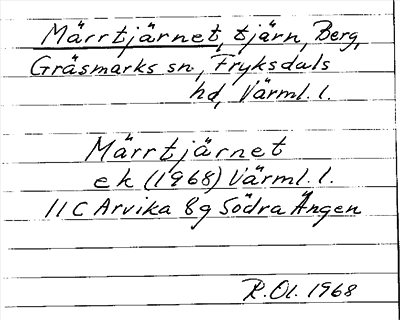 Märrtjärnet, tjärn, Berg,
Gräsmarks sn, Fryksdals
hd, Värml. l.
Märrtjärnet
ek (1968) Värml. l.
11 C Arvika 8g Södra Ängen
R. Ol. 1968